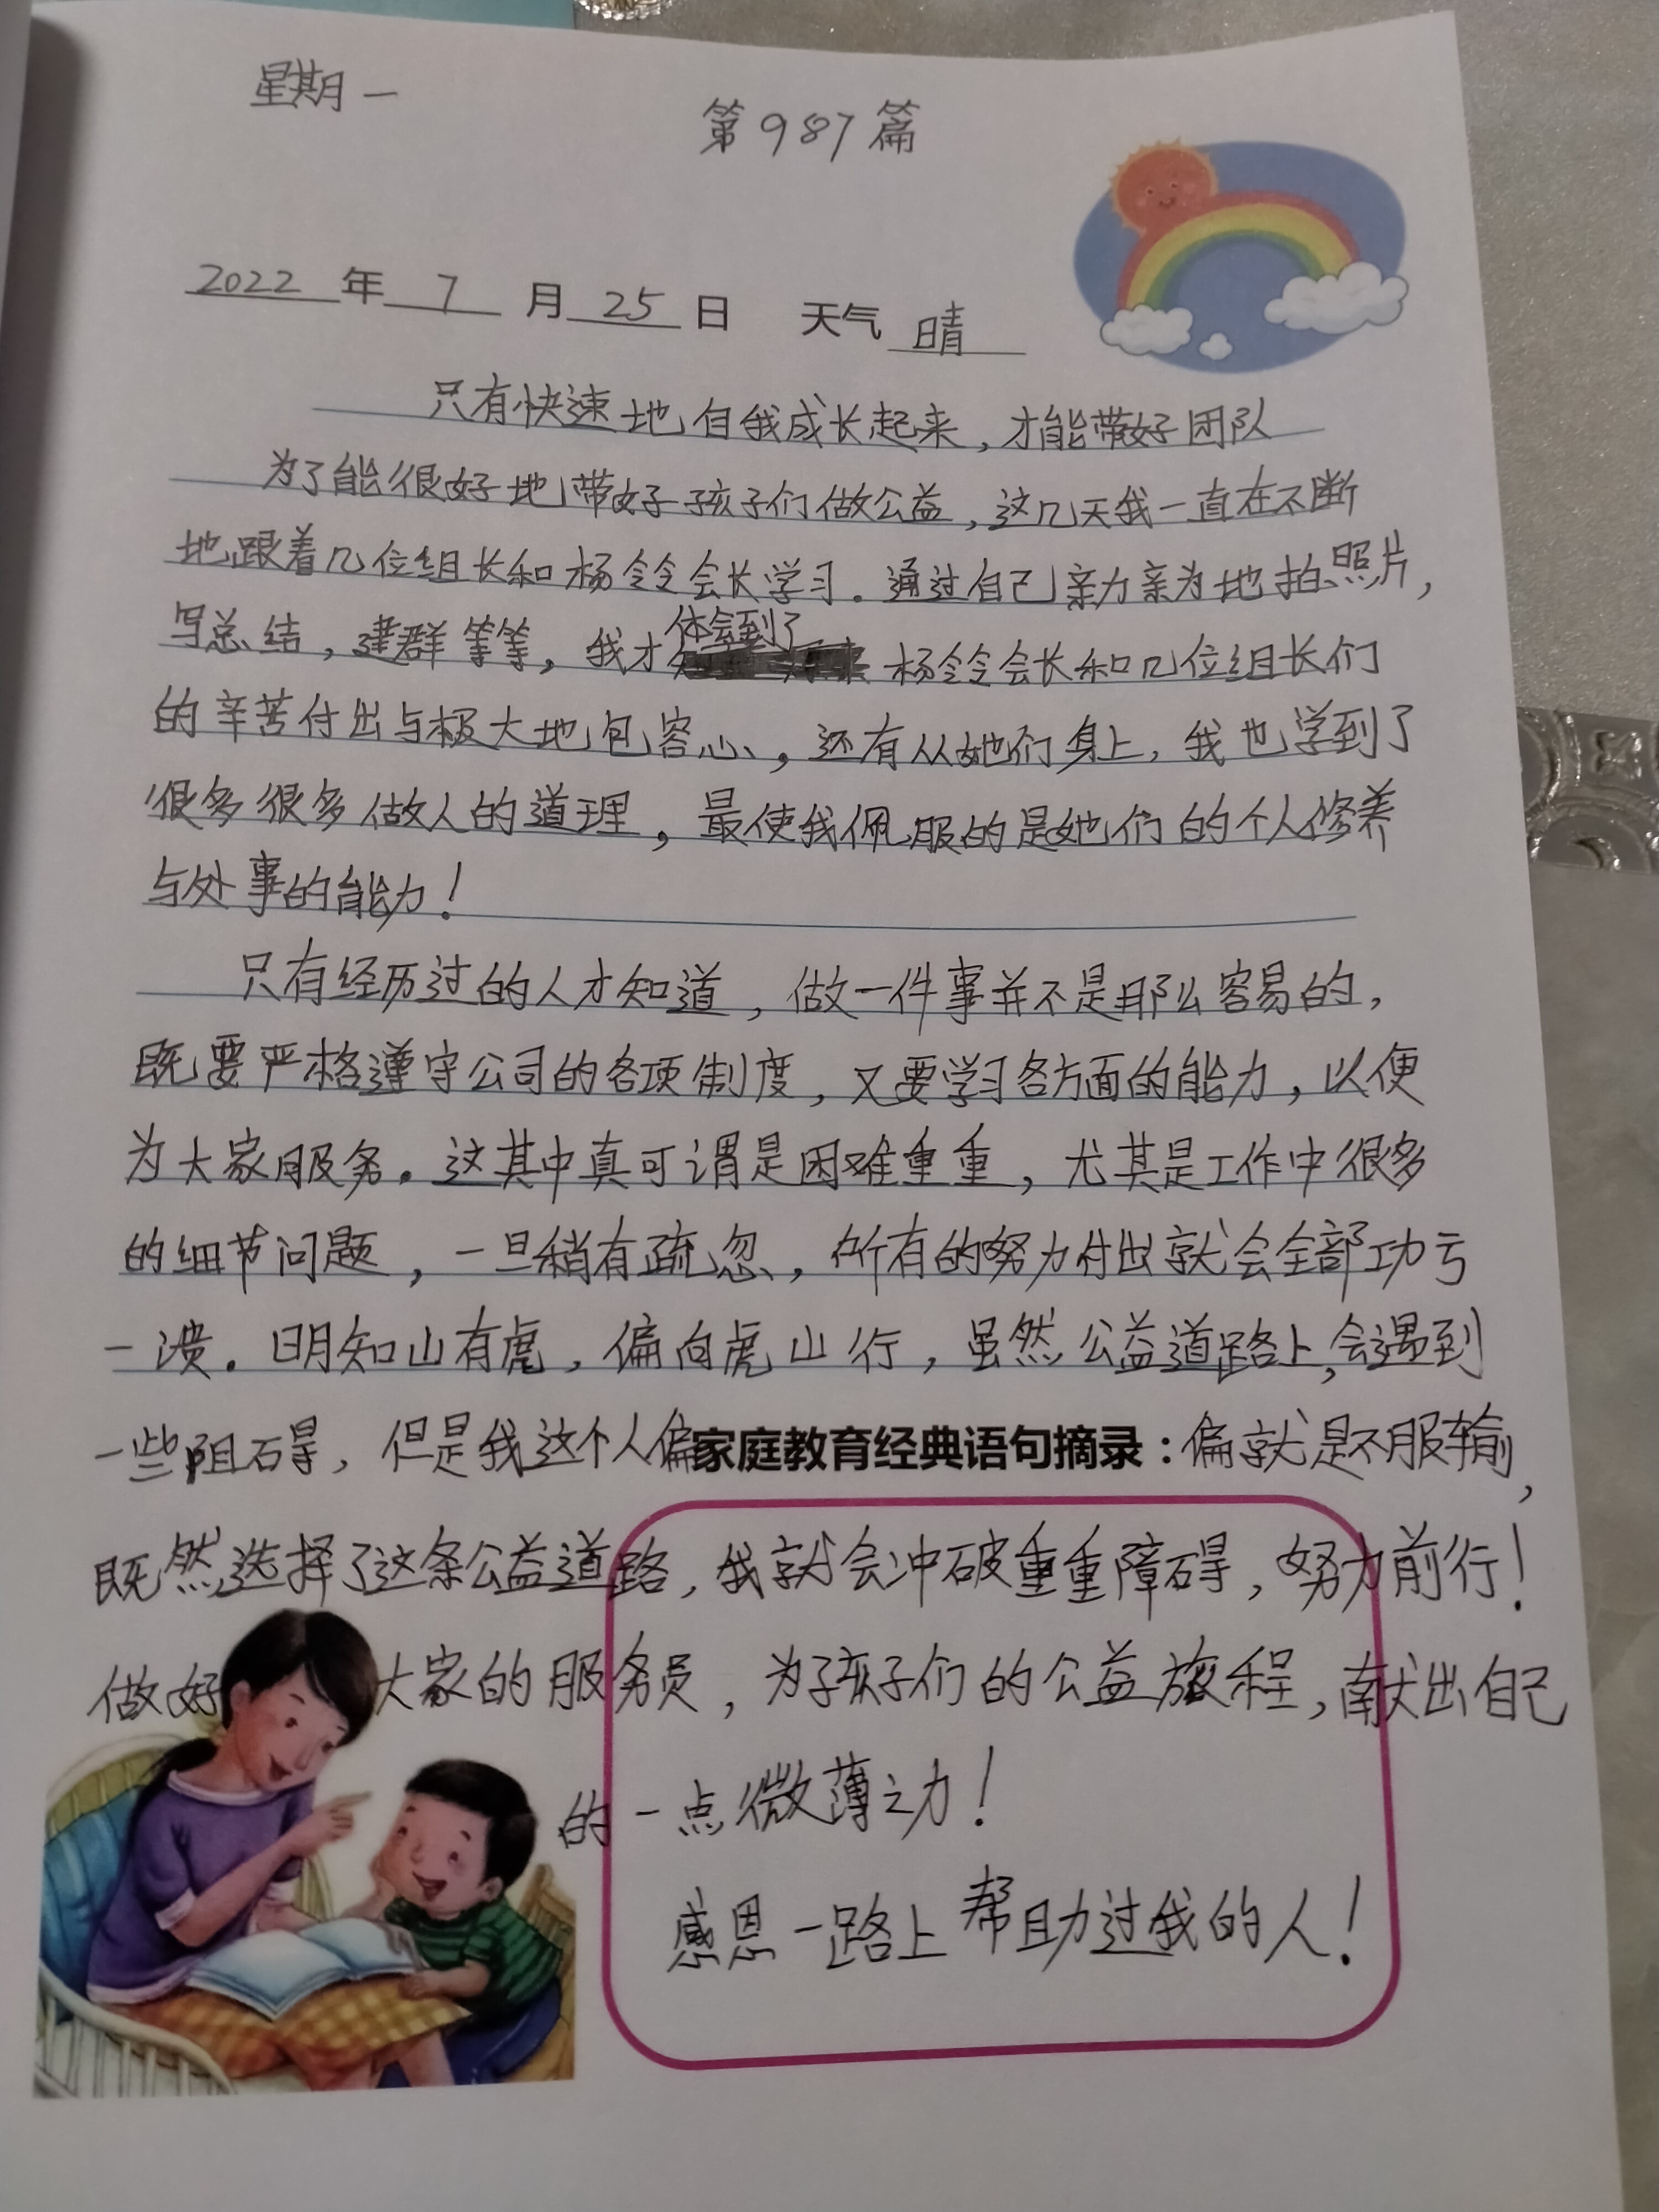 星期一
第987篇
2022年7月25日 天气晴
只有快速地自我成长起来，才能带好团队
为了能很好地带好孩子们做公益，这几天我一直在不断
地跟着几位组长和杨令令会长学习。通过自己亲力亲为地拍照片，
写总结，建群等等，我才体会到了杨令令会长和几位组长们
的辛苦付出与极大地包容心，还有从她们身上，我也学到了
很多很多做人的道理，最使我佩服的是她们的个人修养
与处事的能力！
只有经历过的人才知道，做一件事并不是那么容易的，
既要严格遵守公司的各项制度，又要学习各方面的能力，以便
为大家服务。这其中真可谓是困难重重，尤其是工作中很多
的细节问题，一旦稍有疏忽，所有的努力付出就会全部功亏
一溃。明知山有虎，偏向虎山行，虽然公益道路上，会遇到
一些阻碍，但是我这个人偏家庭教育经典语句摘录：偏就是不服输，
既然选择了这条公益道路，我就会冲破重重障碍，努力前行！
做好大家的服务员，为孩子们的公益旅程，献出自己
的一点微薄之力！
感恩一路上帮助过我的人！